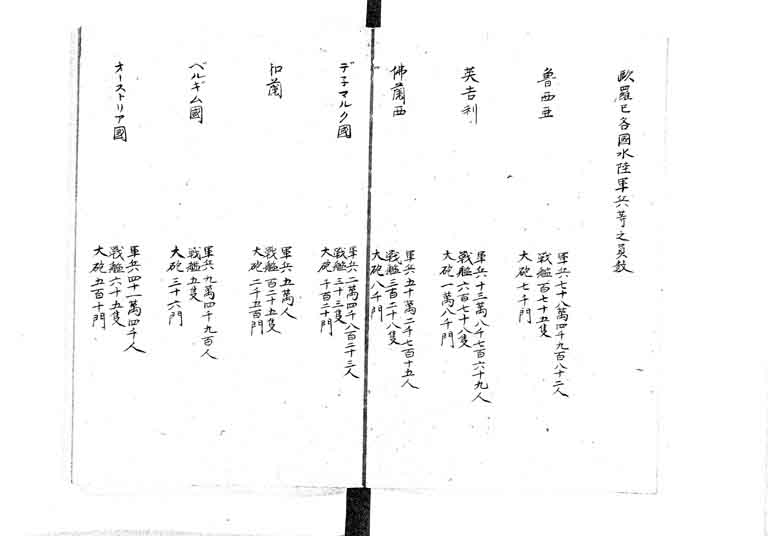 歐羅巴各國水陸軍兵等之員数
魯西亜
軍兵七十八萬四千九百八十二人
戦艦百七十五隻
大砲七千門
英吉利
軍兵十三萬八千七百六十九人
戦艦六百七十八隻
大砲一萬八千門
佛蘭西
軍兵五十萬二千七百十五人
戦艦三百二十八隻
大砲八千門
デ子マルク國
軍兵二萬四千八百二十三人
戦艦三十三隻
大砲千百二十門
和蘭
軍兵五萬人
戦艦百二十五隻
大砲二千五百門
ベルギム國
軍兵九萬四千九百人
戦艦五隻
大砲三十六門
オーストリア國
軍兵四十一萬四千人
戦艦六十五隻
大砲五百十門